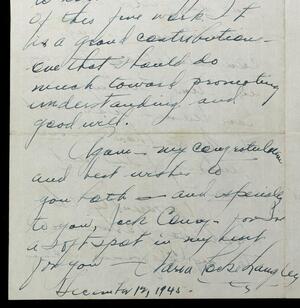 of this fine work. It
is a grand contribution -
one that should do
much toward promoting
understanding and
good will.
Again - my congratulation
and best wishes to
you both - and especially
to you, Jack Conroy - for I've
a soft spot in my heart
for you -
December 12, 1945.